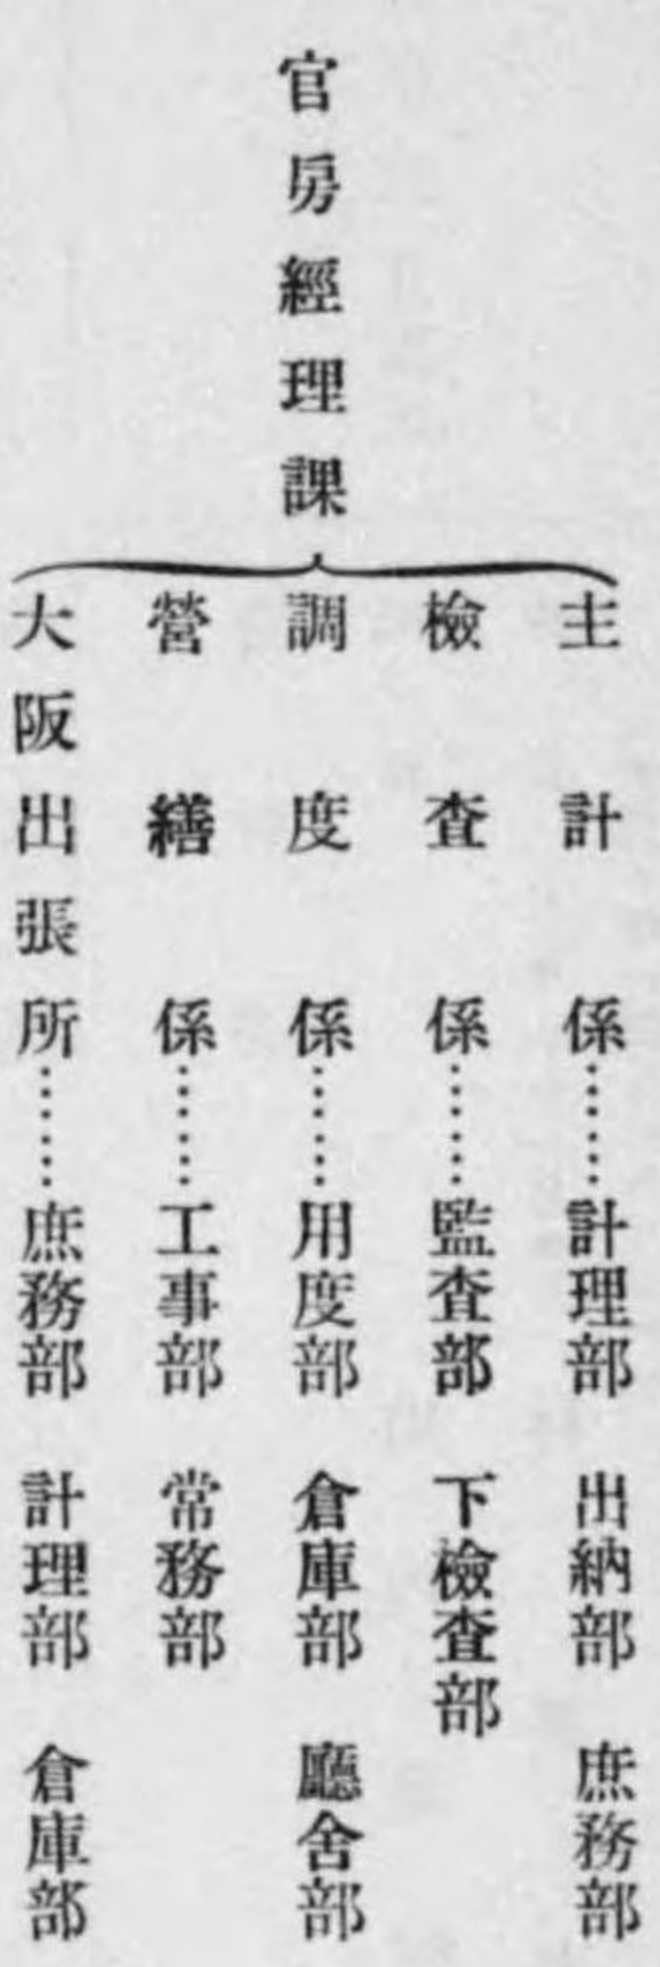 官房經理課
主計係……計理部 出納部 庶務部
檢查係……監查部 下檢查部
調度係……用度部 倉庫部 廳舍部
營繕係……工事部 常務部
大阪出張所……庶務部 計理部 倉庫部